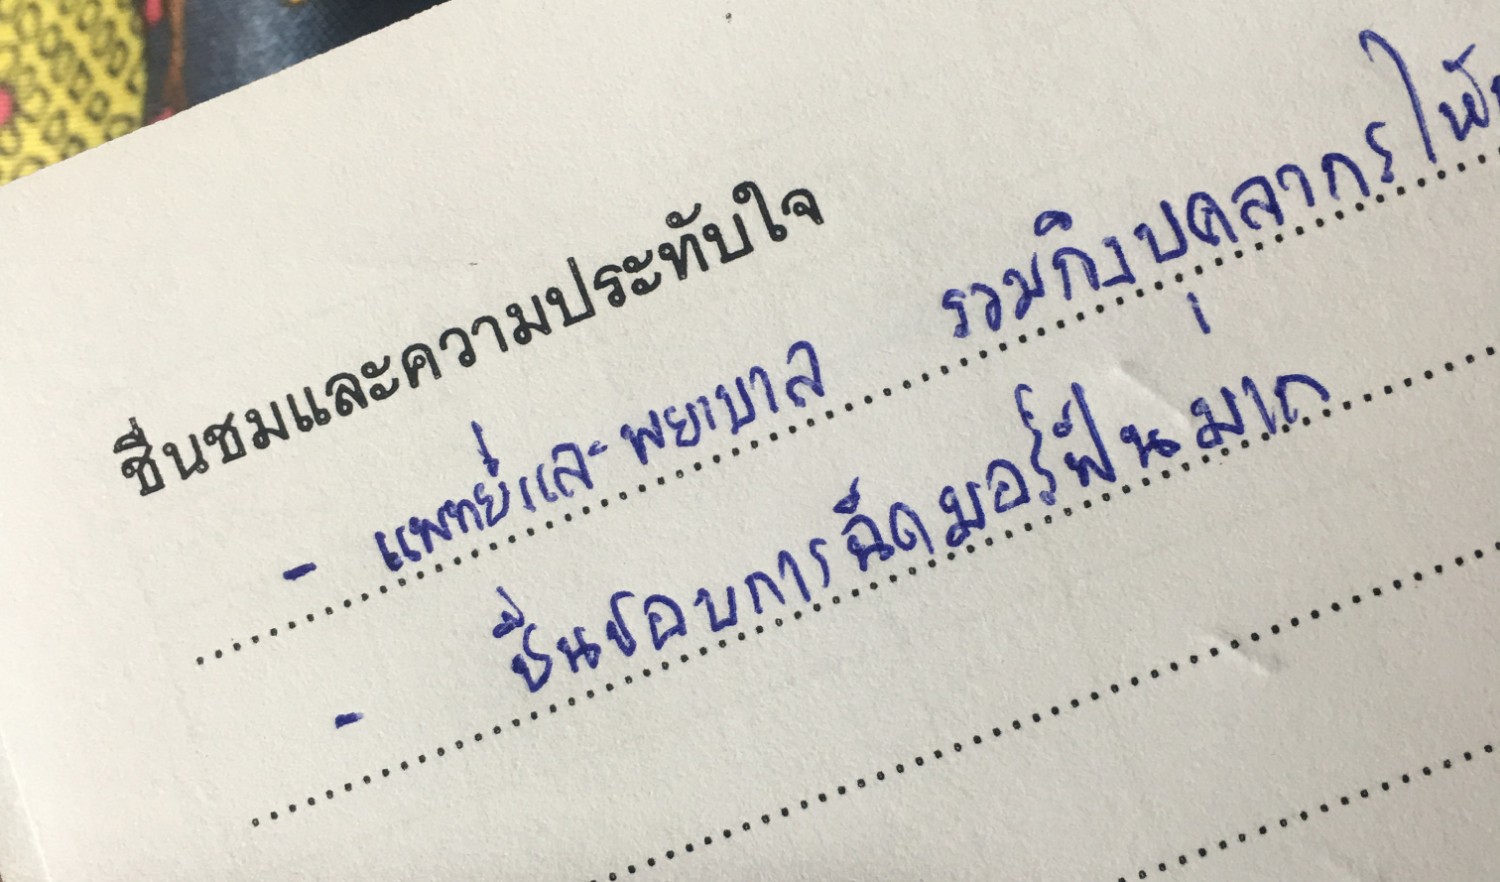 ชื่นชมและความประทับใจ
- แพทย์และพยาบาล รวมถึงบุคลากร
- ชื่นชอบการฉีดมอร์ฟีนมาก